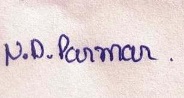 N.D. Parmar.